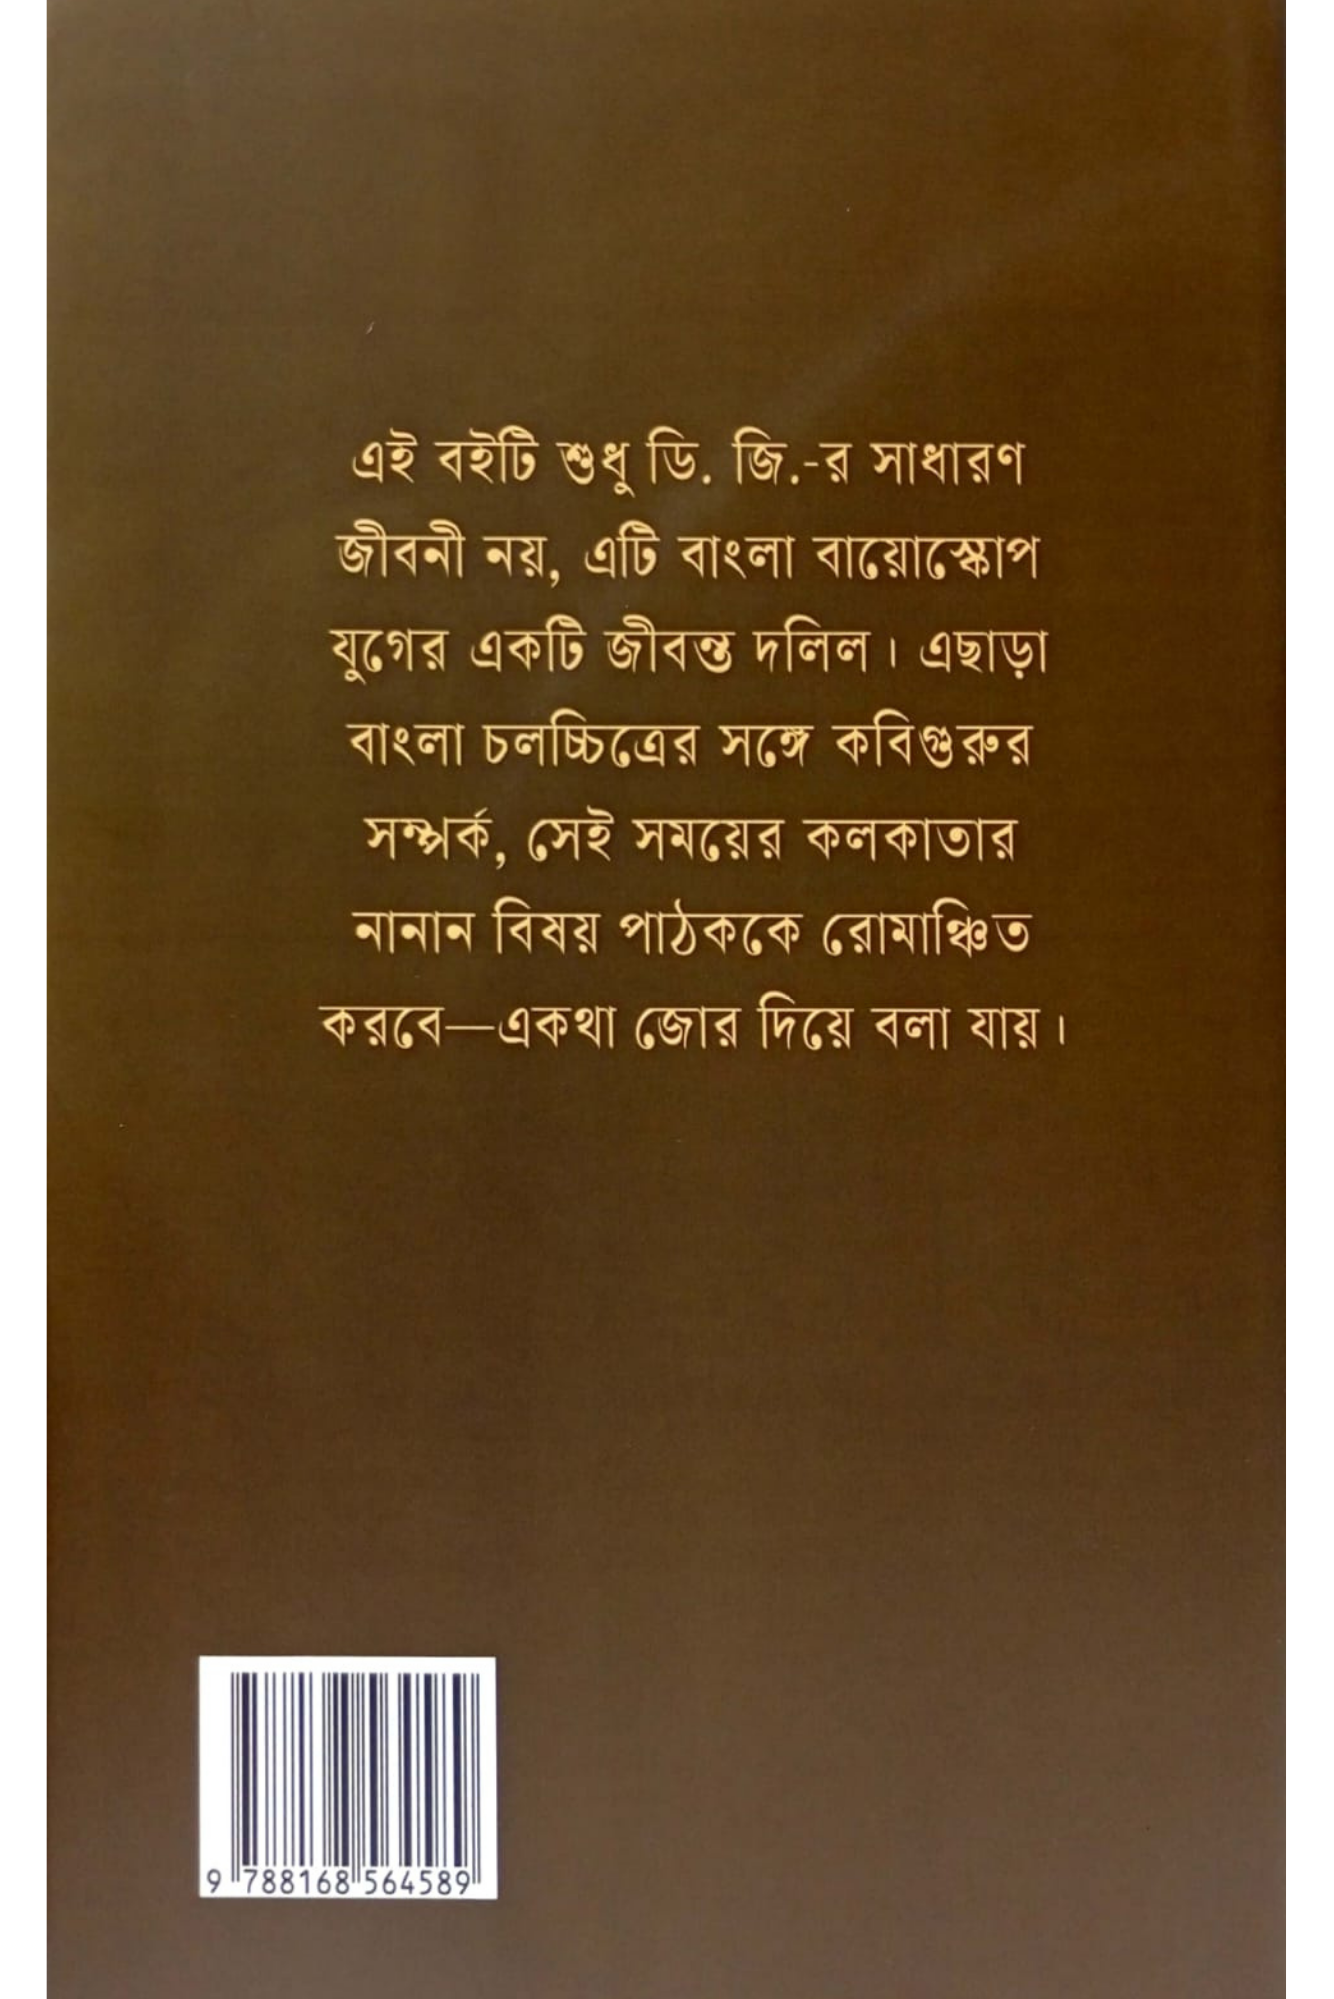 এই বইটি শুধু ডি. জি.-র সাধারণ
জীবনী নয়, এটি বাংলা বায়োস্কোপ
যুগের একটি জীবন্ত দলিল। এছাড়া
বাংলা চলচ্চিত্রের সঙ্গে কবিগুরুর
সম্পর্ক, সেই সময়ের কলকাতার
নানান বিষয় পাঠককে রোমাঞ্চিত
করবে—একথা জোর দিয়ে বলা যায়।
9 788168 564589